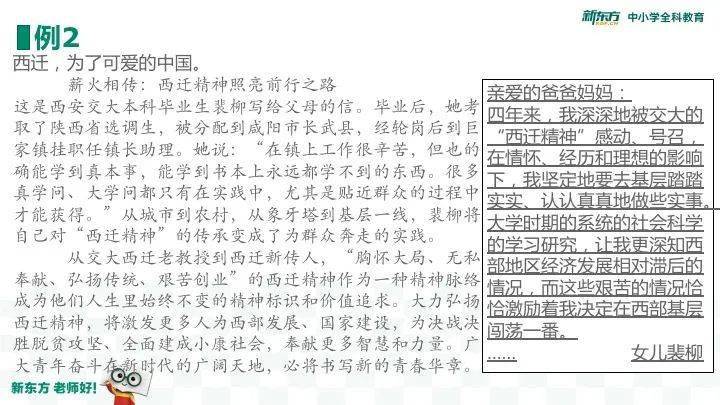 例2
新东方 中小学全科教育
XDF.CN
西迁，为了可爱的中国。
薪火相传：西迁精神照亮前行之路
这是西安交大本科毕业生裴柳写给父母的信。毕业后，她考
取了陕西省选调生，被分配到咸阳市长武县，经轮岗后到巨
家镇挂职任镇长助理。她说：“在镇上工作很辛苦，但也的
确能学到真本事，能学到书本上永远都学不到的东西。很多
真学问、大学问都只有在实践中，尤其是贴近群众的过程中
才能获得。”从城市到农村，从象牙塔到基层一线，裴柳将
自己对“西迁精神”的传承变成了为群众奔走的实践。
从交大西迁老教授到西迁新传人，“胸怀大局、无私
奉献、弘扬传统、艰苦创业”的西迁精神作为一种精神脉络
成为他们人生里始终不变的精神标识和价值追求。大力弘扬
西迁精神，将激发更多人为西部发展、国家建设，为决战决
胜脱贫攻坚、全面建成小康社会，奉献更多智慧和力量。广
大青年奋斗在新时代的广阔天地，必将书写新的青春华章。
亲爱的爸爸妈妈：
四年来，我深深地被交大的
“西迁精神”感动、号召，
在情怀、经历和理想的影响
下，我坚定地要去基层踏踏
实实、认认真真地做些实事。
大学时期的系统的社会科学
的学习研究，让我更深知西
部地区经济发展相对滞后的
情况，而这些艰苦的情况恰
恰激励着我决定在西部基层
闯荡一番。
…… 女儿裴柳
新东方 老师好!